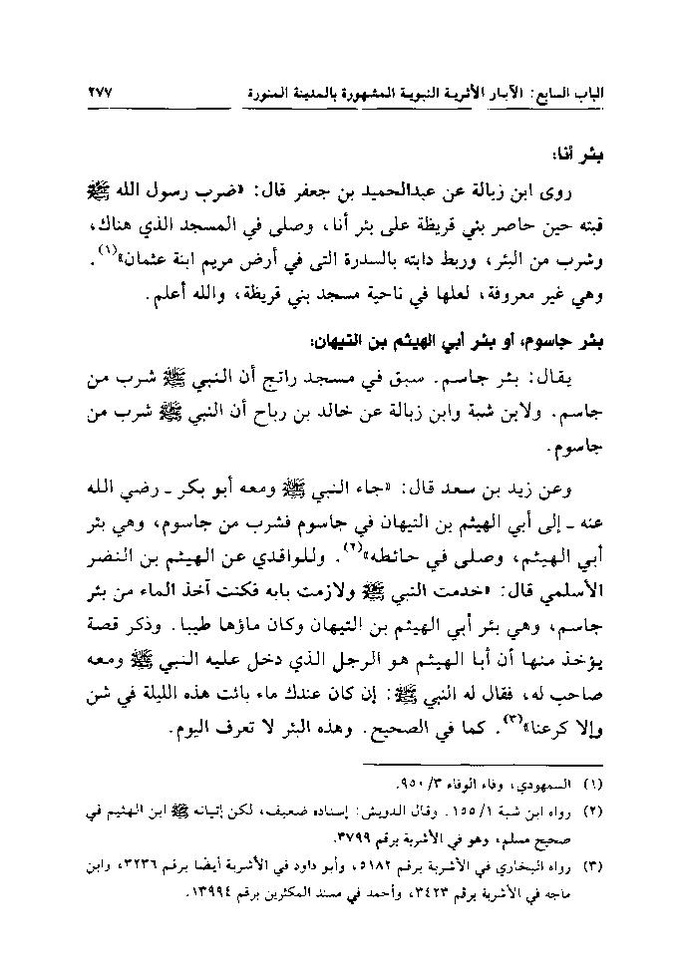 الباب السابع: الآبار الأثرية النبوية المشهورة بالمدينة المنورة ٢٧٧
بئر أنا:
روى ابن زبالة عن عبدالحميد بن جعفر قال: «ضرب رسول الله ﷺ
قبته حين حاصر بني قريظة على بئر أنا، وصلى في المسجد الذي هناك،
وشرب من البئر، وربط دابته بالسدرة التى في أرض مريم ابنة عثمان»(١).
وهي غير معروفة، لعلها في ناحية مسجد بني قريظة، والله أعلم.
بئر جاسوم، أو بئر أبي الهيثم بن التيهان:
يقال: بئر جاسم. سبق في مسجد راتج أن النبي ﷺ شرب من
جاسم. ولابن شبة وابن زبالة عن خالد بن رباح أن النبي ﷺ شرب من
جاسوم.
وعن زيد بن سعد قال: «جاء النبي ﷺ ومعه أبو بكر ـ رضي الله
عنه ـ إلى أبي الهيثم بن التيهان في جاسوم فشرب من جاسوم، وهي بئر
أبي الهيثم، وصلى في حائطه»(٢). وللواقدي عن الهيثم بن النضر
الأسلمي قال: «خدمت النبي ﷺ ولازمت بابه فكنت آخذ الماء من بئر
جاسم، وهي بئر أبي الهيثم بن التيهان وكان ماؤها طيبا. وذكر قصة
يؤخذ منها أن أبا الهيثم هو الرجل الذي دخل عليه النبي ﷺ ومعه
صاحب له، فقال له النبي ﷺ: إن كان عندك ماء بائت هذه الليلة في شن
وإلا كرعنا»(٣). كما في الصحيح. وهذه البئر لا تعرف اليوم.
(١) السمهودي، وفاء الوفاء ٩٥٠/٣.
(٢) رواه ابن شبة ١٥٥/١. وقال الدويش: إسناده ضعيف، لكن إتيانه ﷺ ابن الهثيم في
صحيح مسلم، وهو في الأشربة برقم ٣٧٩٩.
(٣) رواه البخاري في الأشربة برقم ٥١٨٢، وأبو داود في الأشربة أيضا برقم ٣٢٣٦، وابن
ماجه في الأشربة برقم ٣٤٢٣، وأحمد في مسند المكثرين برقم ١٣٩٩٤.